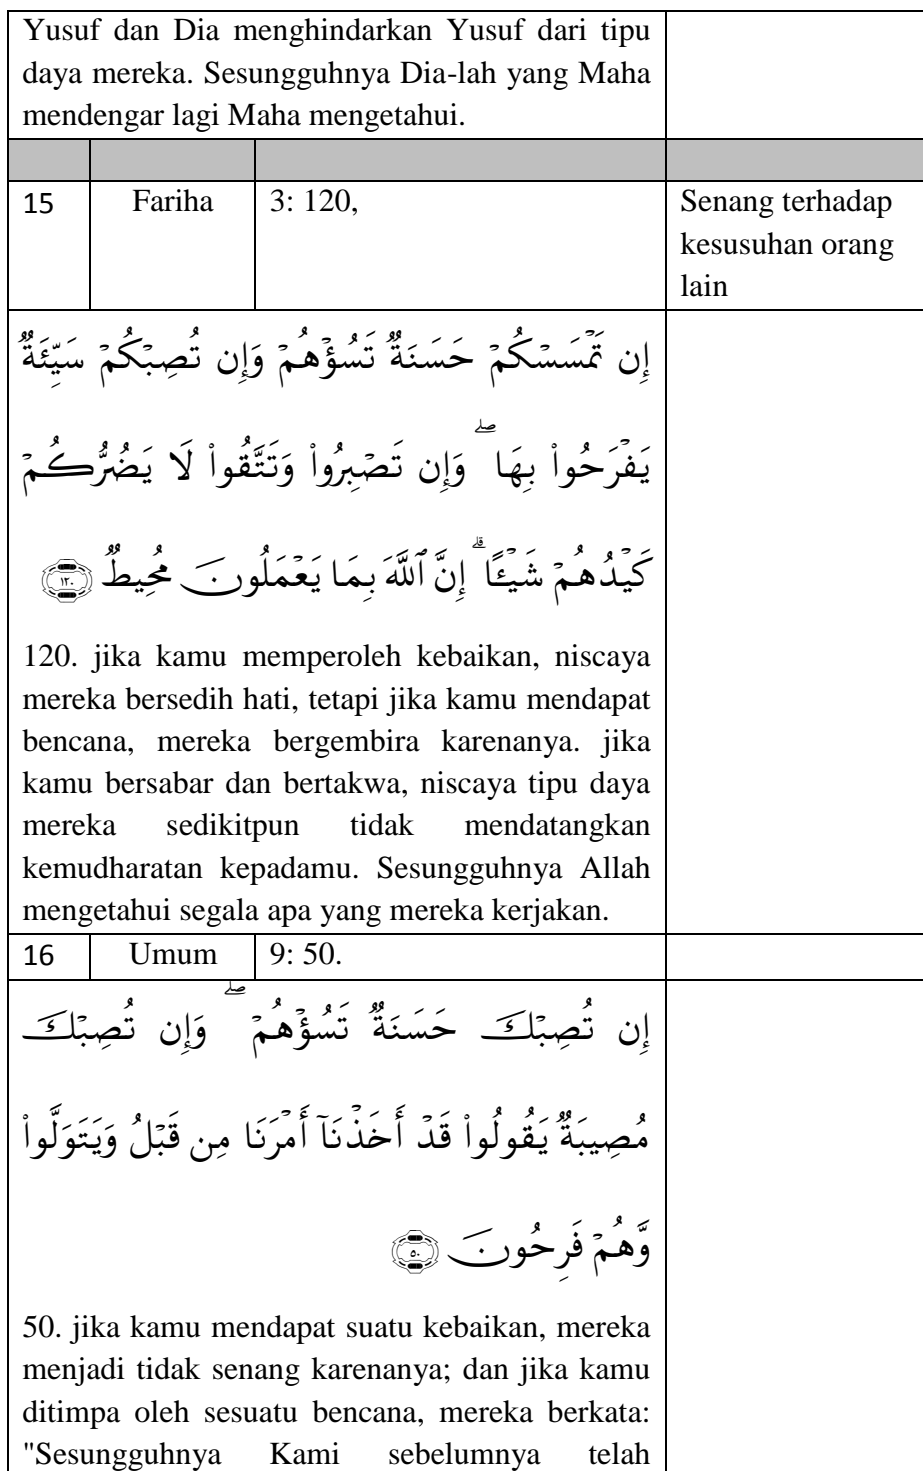 Yusuf dan Dia menghindarkan Yusuf dari tipu
daya mereka. Sesungguhnya Dia-lah yang Maha
mendengar lagi Maha mengetahui.
15 Fariha 3: 120, Senang terhadap
kesusuhan orang
lain
إِن تَمۡسَسۡكُمۡ حَسَنَةٌ تَسُؤۡهُمۡ وَإِن تُصِبۡكُمۡ سَيِّئَةٌ
يَفۡرَحُواْ بِهَاۖ وَإِن تَصۡبِرُواْ وَتَتَّقُواْ لَا يَضُرُّكُمۡ
كَيۡدُهُمۡ شَيۡـًٔاۗ إِنَّ ٱللَّهَ بِمَا يَعۡمَلُونَ مُحِيطٌ ١٢٠
120. jika kamu memperoleh kebaikan, niscaya
mereka bersedih hati, tetapi jika kamu mendapat
bencana, mereka bergembira karenanya. jika
kamu bersabar dan bertakwa, niscaya tipu daya
mereka sedikitpun tidak mendatangkan
kemudharatan kepadamu. Sesungguhnya Allah
mengetahui segala apa yang mereka kerjakan.
16 Umum 9: 50.
إِن تُصِبۡكَ حَسَنَةٌ تَسُؤۡهُمۡۖ وَإِن تُصِبۡكَ
مُصِيبَةٌ يَقُولُواْ قَدۡ أَخَذۡنَآ أَمۡرَنَا مِن قَبۡلُ وَيَتَوَلَّواْ
وَّهُمۡ فَرِحُونَ ٥٠
50. jika kamu mendapat suatu kebaikan, mereka
menjadi tidak senang karenanya; dan jika kamu
ditimpa oleh sesuatu bencana, mereka berkata:
"Sesungguhnya Kami sebelumnya telah